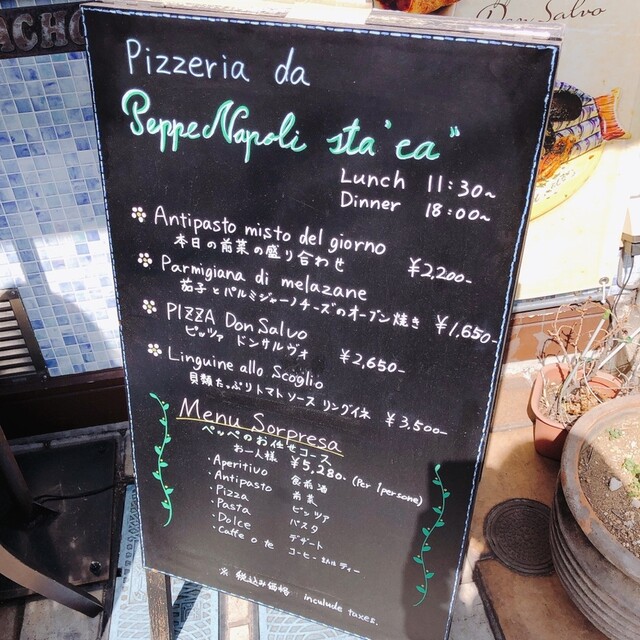 ACHO
Don Salvo
Pizzeria da
Peppe Napoli sta"ca"
Lunch 11:30~
Dinner 18:00~
Antipasto misto del giorno
本日の前菜の盛り合わせ ¥2,200-
Parmigiana di melazane
茄子とパルミジャーノチーズのオーブン焼き ¥1,650-
PIZZA Don Salvo
ピッツァ ドンサルヴォ ¥2,650-
Linguine allo Scoglio
貝類たっぷりトマトソース リングイネ ¥3,500-
Menu Sorpresa
ペッペのお任せコース
お一人様 ¥5,280. (Per 1persone)
・Aperitivo 食前酒
・Antipasto 前菜
・Pizza ピッツァ
・Pasta パスタ
・Dolce デザート
・Caffe o te コーヒー または ティー
※ 税込み価格 Inculude taxes.